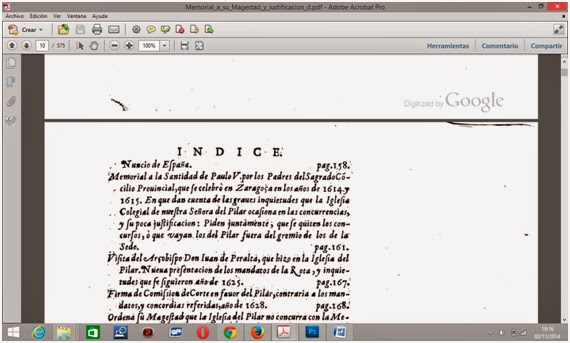 Memorial_a_su_Magestad_y_iustificacion_d.pdf - Adobe Acrobat Pro
Archivo Edición Ver Ventana Ayuda
Crear
10 / 575 100% Herramientas Comentario Compartir
Digitized by Google
INDICE.
Nuncio de España. pag.158.
Memorial a la Santidad de Paulo V. por los Padres del Sagrado Cõ-
cilio Prouincial, que se celebrò en Zaragoza en los años de 1614. y
1615. En que dan cuenta de las graues inquietudes que la Iglesia
Colegial de nuestra Señora del Pilar ocasiona en las concurrencias,
y su poca justificacion: Piden juntamente, que se quiten los con-
cursos, ò que vayan los del Pilar fuera del gremio de los de la
Sedo. pag.161.
Visita del Arçobispo Don Iuan de Peralta, que hizo en la Iglesia del
Pilar. Nueua presentacion de los mandatos de la Rota, y inquie-
tudes que se siguieron año de 1625. pag.167.
Firma de Comission de Corte en fauor del Pilar, contraria a los man-
datos, y concordias referidas, año de 1628. pag.168.
Ordena su Magestad que la Iglesia del Pilar no concurra con la Me-
19:16
30/11/2014